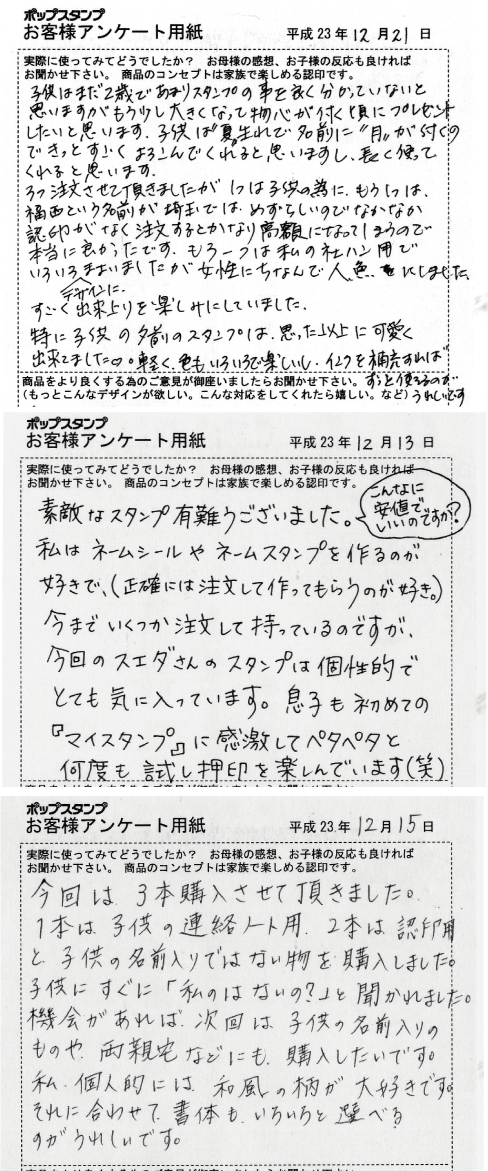 ポップスタンプ
お客様アンケート用紙 平成23年12月21日
実際に使ってみてどうでしたか？ お母様の感想、お子様の反応も良ければ
お聞かせ下さい。 商品のコンセプトは家族で楽しめる認印です。
子供はまだ2歳であまりスタンプの事を良く分かっていないと
思いますがもう少し大きくなって物心が付く頃にプレゼント
したいと思います。子供は夏生れで名前に"月"が付くの
できっとすごくよろこんでくれると思いますし、長く使って
くれると思います。
3つ注文させて頂きましたが1つは子供の為に、もう1つは、
福西という名前が埼玉では、めずらしいのでなかなか
認印がなく注文するとかなり高額になってしまうので
本当に良かったです。もう一つは私の社ハン用で
いろいろまよいましたが女性にちなんで人、色、にしました
デザインに
すごく出来上りを楽しみにしていました。
特に子供の名前のスタンプは、思った以上に可愛く
出来てました♡♡軽く、色もいろいろで楽しいし、インクを補充すれば
商品をより良くする為のご意見が御座いましたらお聞かせ下さい。ずっと使えるのが
（もっとこんなデザインが欲しい。こんな対応をしてくれたら嬉しい。など）うれしいです
ポップスタンプ
お客様アンケート用紙 平成23年12月13日
実際に使ってみてどうでしたか？ お母様の感想、お子様の反応も良ければ
お聞かせ下さい。 商品のコンセプトは家族で楽しめる認印です。
こんなに
安値で
いいのですか？
素敵なスタンプ有難うございました。
私はネームシールやネームスタンプを作るのが
好きで、(正確には注文して作ってもらうのが好き。)
今までいくつか注文して持っているのですが、
今回のスエダさんのスタンプは個性的で
とても気に入っています。息子も初めての
『マイスタンプ』に感激してペタペタと
何度も試し押印を楽しんでいます(笑)
ポップスタンプ
お客様アンケート用紙 平成23年12月15日
実際に使ってみてどうでしたか？ お母様の感想、お子様の反応も良ければ
お聞かせ下さい。 商品のコンセプトは家族で楽しめる認印です。
今回は、3本購入させて頂きました。
1本は、子供の連絡ノート用、2本は認印用
と、子供の名前入りではない物を購入しました。
子供にすぐに「私のはないの？」と聞かれました。
機会があれば、次回は、子供の名前入りの
ものや、両親宅などにも、購入したいです。
私、個人的には、和風の柄が大好きです。
それに合わせて、書体も、いろいろと選べる
のがうれしいです。